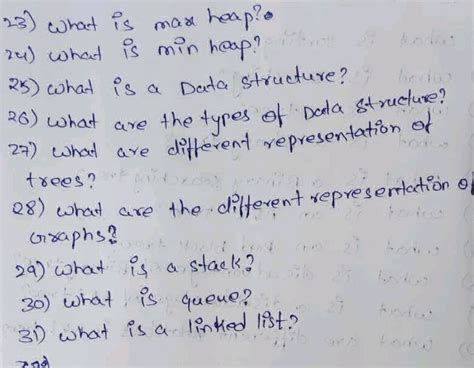 23) what is max heap?
24) what is min heap?
25) what is a Data structure?
26) what are the types of Data structure?
27) what are different representation of
trees?
28) what are the different representation of
Graphs?
29) what is a stack?
30) what is queue?
31) what is a linked list?